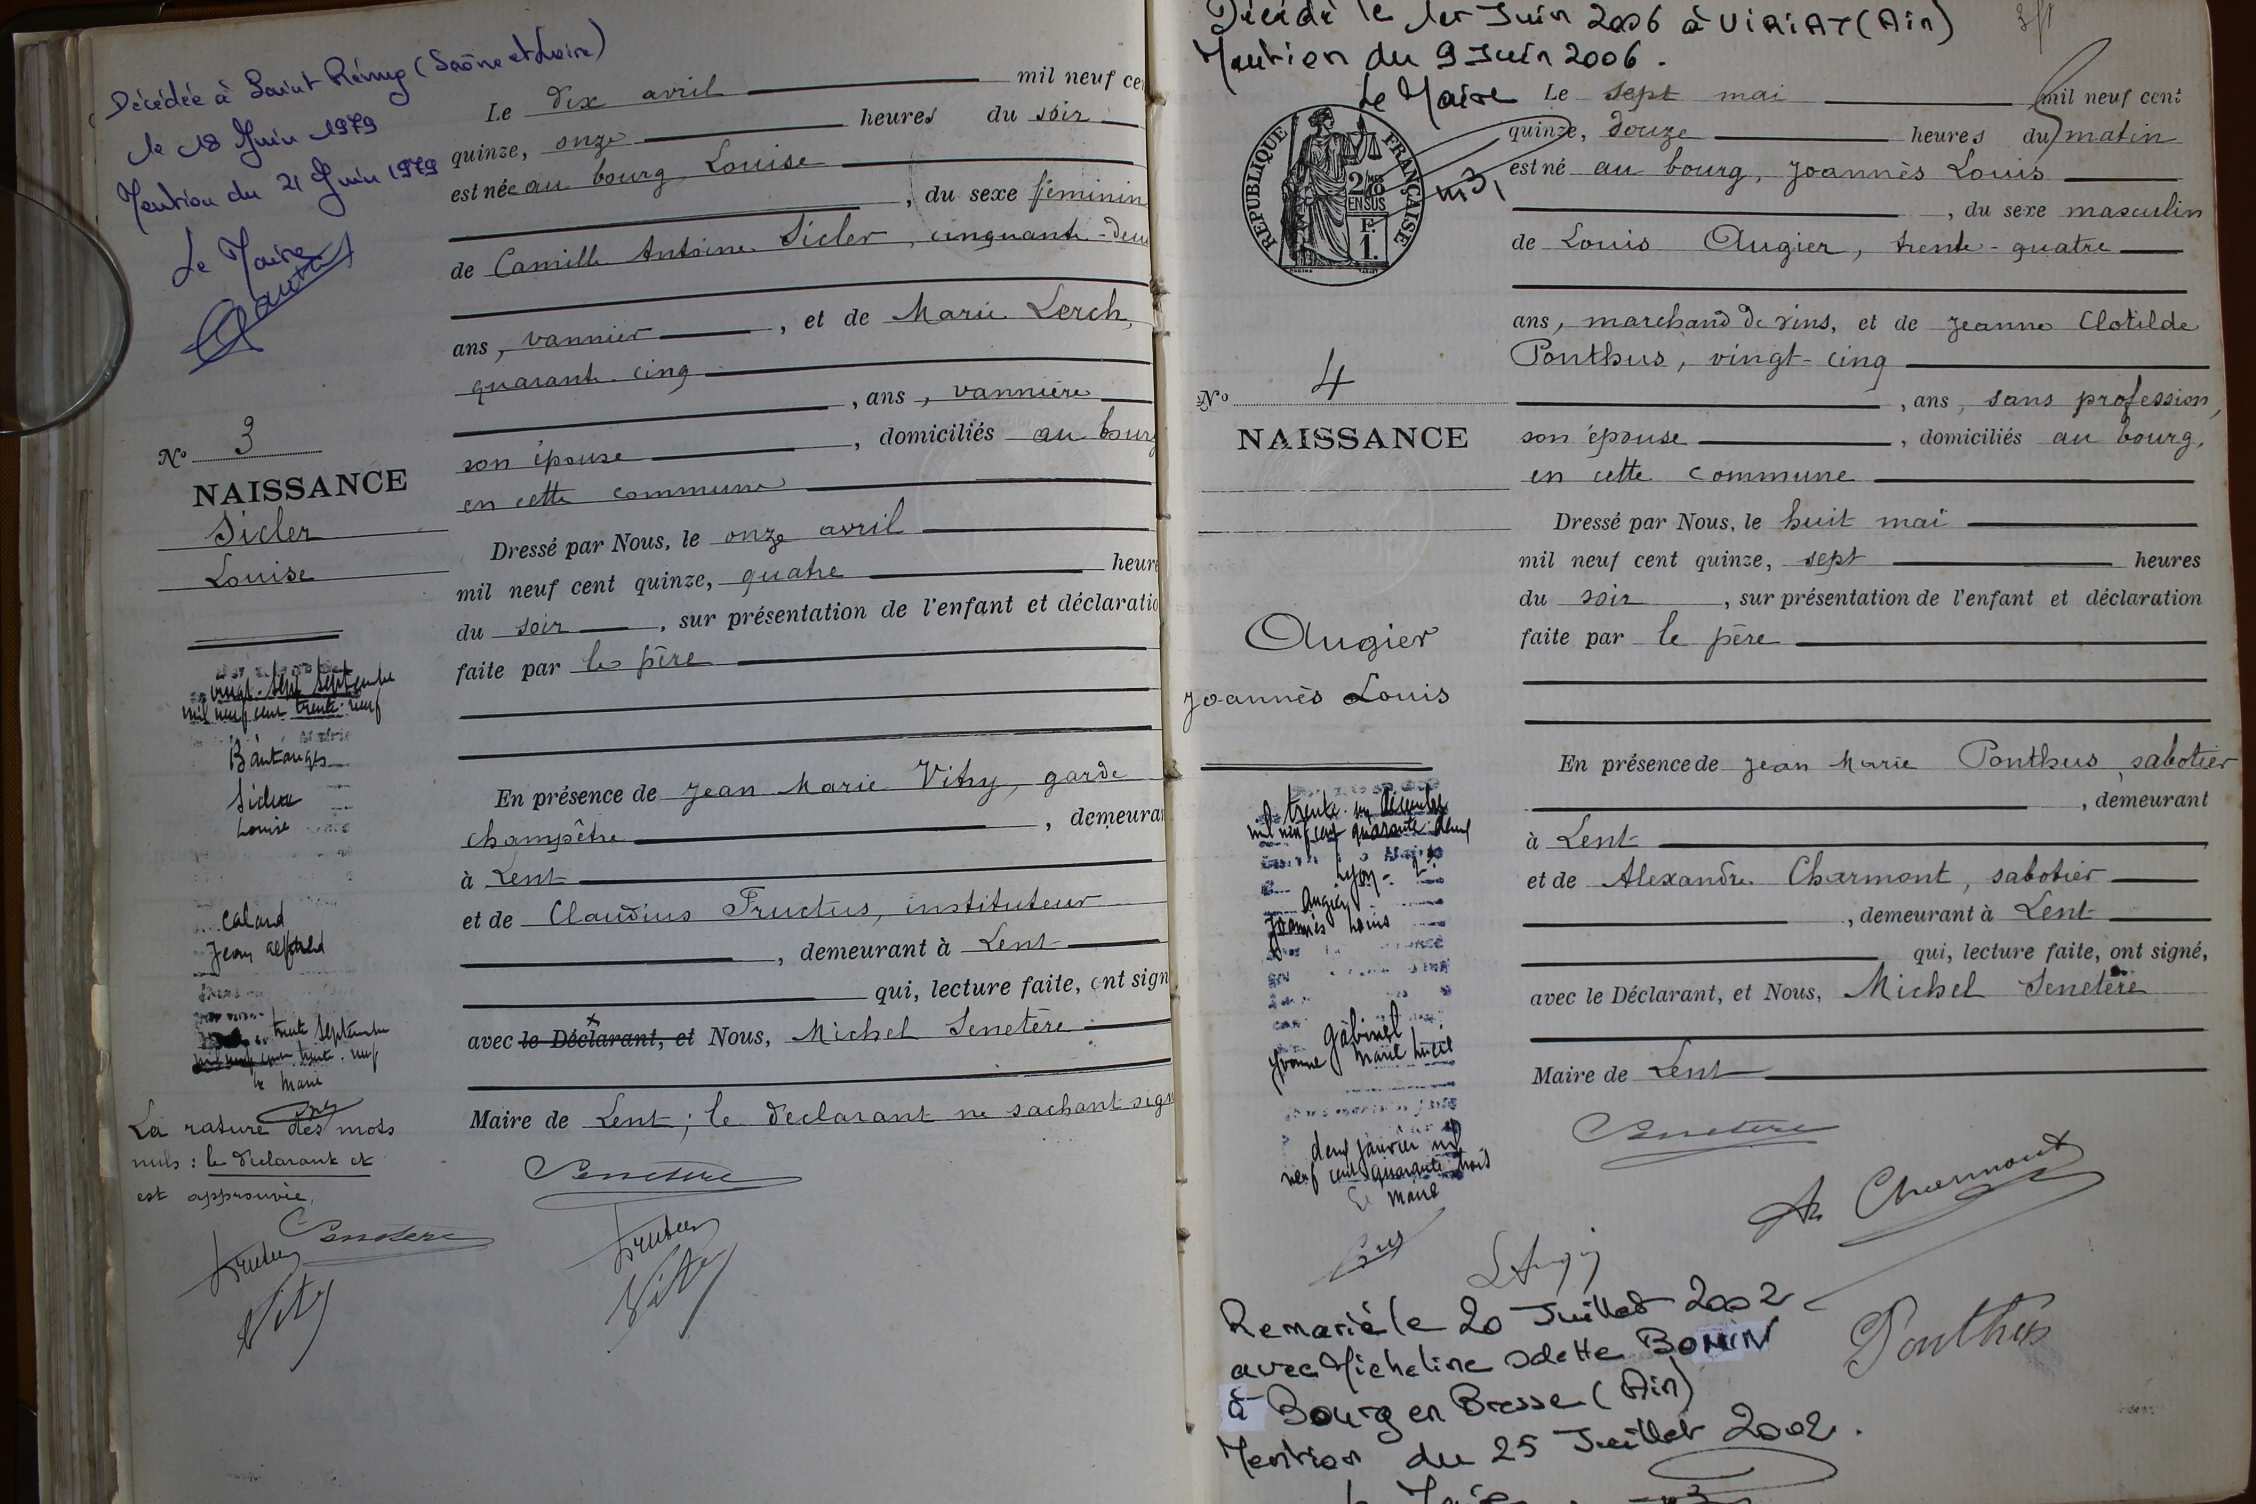 Décédée à Saint Rémy (Saône et Loire)
le 18 Juin 1979
Mention du 21 Juin 1979
Le Maire
No 3
NAISSANCE
Sicler
Louise
vingt-sept septembre
mil neuf cent trente-neuf
Bantanges
Sicler
Louise
Caland
Jean
trente septembre
mil neuf cent trente-neuf
le Maire
La rature des mots
nuls : le déclarant et
est approuvée,
Senetère
Vitry
Le dix avril mil neuf cen
quinze, onze heures du soir
est née au bourg Louise
, du sexe féminin
de Camille Antoine Sicler, cinquante-deux
ans, vannier, et de Marie Lerch,
quarante-cinq
, ans, vannière
son épouse, domiciliés au bourg
en cette commune
Dressé par Nous, le onze avril
mil neuf cent quinze, quatre heure
du soir, sur présentation de l'enfant et déclaratio
faite par le père
En présence de Jean Marie Vitry, garde
champêtre, demeuran
à Lent
et de Claudius Fructus, instituteur
, demeurant à Lent
qui, lecture faite, ont sign
avec le Déclarant, et Nous, Michel Senetère
Maire de Lent ; le déclarant ne sachant sign
Senetère
Fructus
Vitry
Décédé le 1er Juin 2006 à VIRIAT (Ain)
Mention du 9 Juin 2006.
Le Maire
RÉPUBLIQUE FRANÇAISE
2/10
EN SUS
F.
1.
No 4
NAISSANCE
Augier
Joannès Louis
trente-un décembre
mil neuf cent quarante-deux
Lyon-2
Augier
Joannès Louis
Gabinel
Yvonne Marie
deux janvier mil
neuf cent quarante trois
Le Maire
Le sept mai mil neuf cent
quinze, douze heures du matin
est né au bourg, Joannès Louis
, du sexe masculin
de Louis Augier, trente-quatre
ans, marchand de vins, et de Jeanne Clotilde
Ponthus, vingt-cinq
, ans, sans profession,
son épouse, domiciliés au bourg,
en cette commune
Dressé par Nous, le huit mai
mil neuf cent quinze, sept heures
du soir, sur présentation de l'enfant et déclaration
faite par le père
En présence de Jean Marie Ponthus, sabotier
, demeurant
à Lent
et de Alexandre Charmont, sabotier
, demeurant à Lent
qui, lecture faite, ont signé,
avec le Déclarant, et Nous, Michel Senetère
Maire de Lent
Senetère
Charmont
Ponthus
Remarié le 20 Juillet 2002
avec Micheline Odette BONIN
à Bourg en Bresse (Ain)
Mention du 25 Juillet 2002.
Le Maire